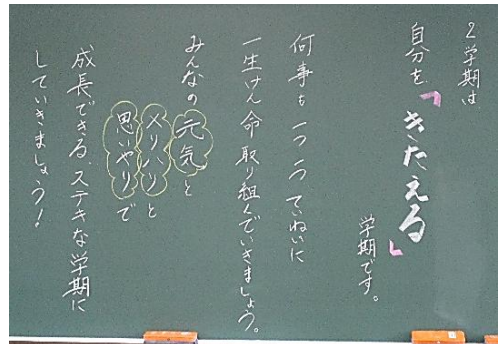 2学期は
自分を「きたえる」
学期です。
何事も一つ一つていねいに
一生けん命取り組んでいきましょう。
みんなの元気と
メリハリと
思いやりで
成長できる、ステキな学期に
していきましょう！